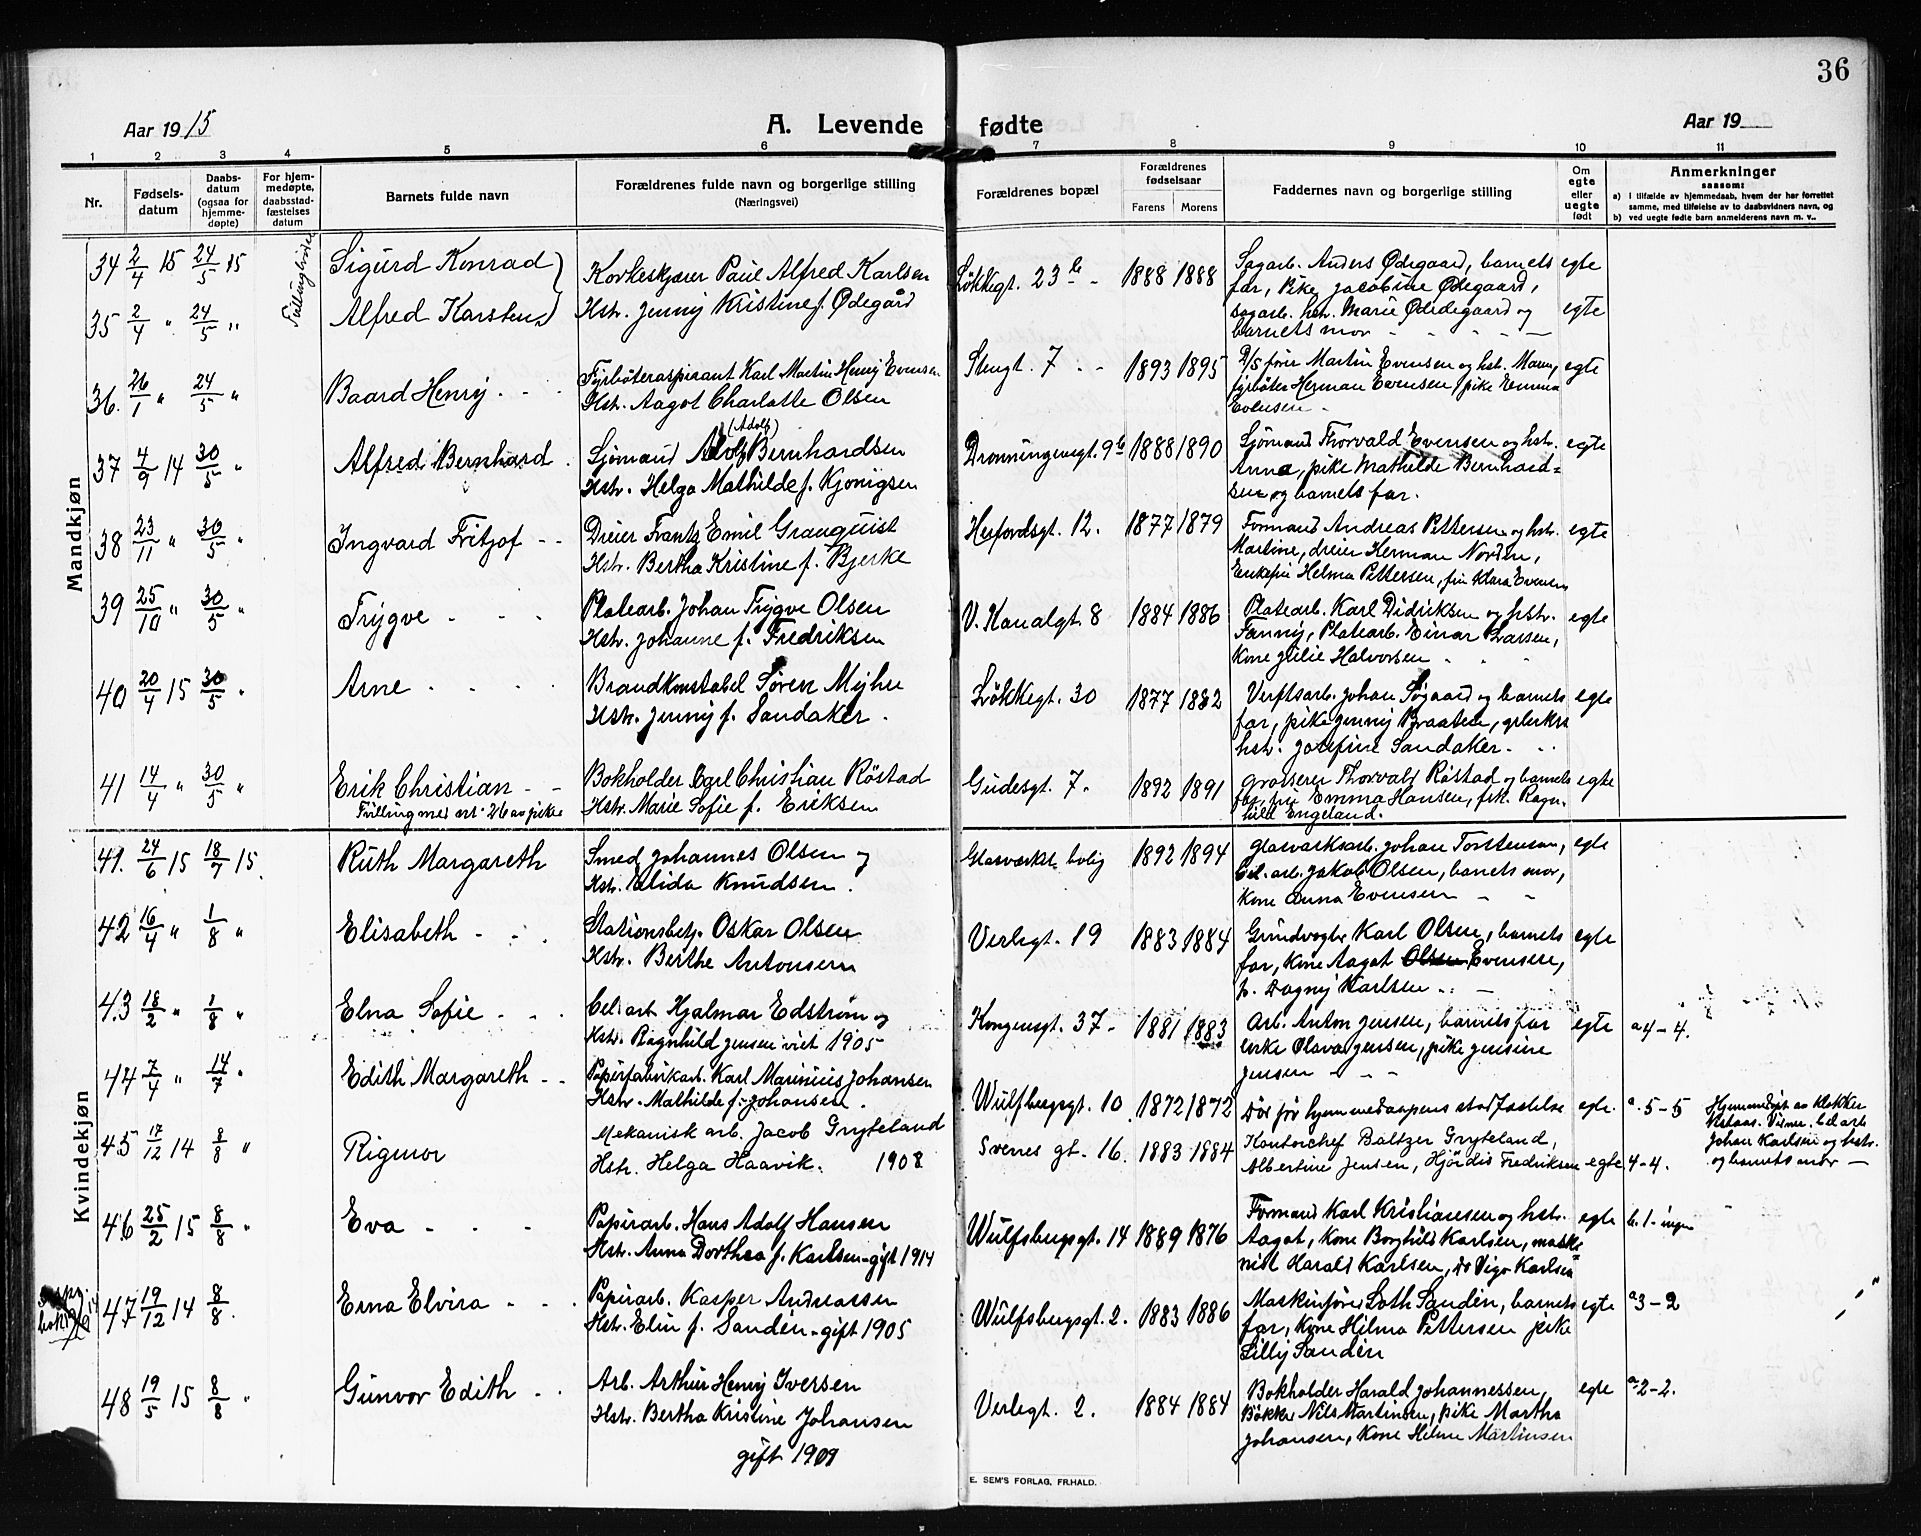 36
Aar 1915
A. Levende
fødte
Aar 19
1 2 3 4 5 6 7 8 9 10 11
Nr.
Fødsels-
datum
Daabs-
datum
(ogsaa for
hjemme-
døpte)
For hjem-
medøpte,
daabsstad-
fæstelses
datum
Barnets fulde navn
Forældrenes fulde navn og borgerlige stilling
(Næringsvei)
Forældrenes bopæl
Forældrenes
fødselsaar
Farens Morens
Faddernes navn og borgerlige stilling
Om
egte
eller
uegte
født
Anmerkninger
saasom:
a) i tilfælde av hjemmedaab, hvem der har forrettet
samme, med tilføielse av to daabsvidners navn, og
b) ved uegte fødte barn anmelderens navn m. v..
Mandkjøn
34 2/4 15 24/5 15 Sigurd Konrad Korkeskjærer Paul Alfred Karlsen Løkkegt. 23 b 1888 1888 Sagarb. Anders Ødegaard, barnets egte
35 2/4 " 24/5 " Alfred Karsten Hstr. Jenny Kristine f. Ødegård far, Pike Jacobine Ødegaard, egte
sagarb. hstr. Marie Ødedegaard og
barnets mor
36. 26/1 " 24/5 " Baard Henry Fyrbøteraspirant Karl Martin Henry Evensen Stengt. 7 1893 1895 D/S fører Martin Evensen og hst. Maren, egte
Hstr. Aagot Charlotte Olsen fyrbøter Herman Evensen, pike Emma
Evensen
37 4/9 14 30/5 " Alfred Bernhard Sjømand Adolf (Adolf) Bernhardsen Dronningensgt. 9b 1888 1890 Sjømand Thorvald Evensen og hstr. egte
Hstr. Helga Mathilde f. Kjønigsen Anna, pike Mathilde Bernhard=
sen og barnets far.
38 23/11 " 30/5 " Ingvard Fritjof Dreier Frantz Emil Granquist Herfordsgt. 12. 1877 1879 Formand Andreas Pettersen og hstr. egte
Hstr. Bertha Kristine f. Bjerke Martine, dreier Herman Norden,
Enkefru Helma Pettersen, fru Klara Evensen
39 25/10 " 30/5 " Trygve Platearb. Johan Trygve Olsen V. Kanalgt. 8 1884 1886 Platearb. Karl Didriksen og hstr. egte
Hstr. Johanne f. Fredriksen Fanny, Platearb. Einar Larsen,
Kone Julie Halvorsen
40 20/4 15 30/5 " Arne Brandkonstabel Søren Myhre Løkkegt. 30 1877 1882 Verftsarb. Johan Søgaard og barnets egte
Hstr. Jenny f. Sandaker. far, pike Jenny Braaten,
hstr. Josefine Sandaker.
41 14/4 " 30/5 " Erik Christian Bokholder Carl Christian Røstad Gudesgt. 7. 1892 1891 Grosserer Thorvald Røstad og barnets egte
Tvilling med nr. 26 av pike Hstr. Marie Sofie f. Eriksen far, fru Emma Hansen, frk. Ragn-
hild Engeland.
Kvindekjøn
41. 24/6 15 18/7 15. Ruth Margareth Smed Johannes Olsen og Glasverkets bolig 1892 1894 Glasverksarb. Johan Torstensen, egte
Hstr. Elida Knudsen. Cel. arb. Jakob Olsen, barnets mor,
Kone Anna Evensen
42 16/4 " 1/8 " Elisabeth Stationsbetj. Oskar Olsen Verlegt. 19 1883 1884 Grundvogter Karl Olsen, barnets egte
Hstr. Berthe Antonsen far, Kone Aagot Olsen Evensen,
p. Dagny Karlsen
43 18/2 " 1/8 " Elna Sofie Cel. arb. Hjalmar Edstrøm og Kongensgt. 37 1881 1883 Arb. Anton Jensen, barnets far egte a 4-4.
Hstr. Ragnhild Jensen viet 1905 enke Olava Jensen, pike Jensine
Jensen
44 7/4 " 14/7 " Edith Margareth Papirfabrikarb. Karl Marinius Johansen Wulfbergsgt. 10 1872 1872 Død før hjemmedaapens stadfæstelse egte. a. 5-5
Hstr. Mathilde f. Johansen.
Hjemmedøpt av klokker
Vidner: Cel. arb.
Johan Karlsen og hstr.
og barnets mor
45 17/12 14 8/8 " Rigmor Mekanisk arb. Jacob Gryteland Svenes gt. 16. 1883 1884 Kontorchef Baltzer Gryteland,
Hstr. Helga Haavik. 1908 Albertine Jensen, Hjørdis Fredriksen egte 4-4.
46 25/2 15 8/8 " Eva Papirarb. Hans Adolf Hansen Wulfsbergsgt. 14 1889 1876 Formand Karl Kristiansen og hstr. egte b. 1-ingen
Hstr. Anna Dorthea f. Karlsen gift 1914 Aagot, Kone Borghild Karlsen, maski=
nist Harald Karlsen, Do Vigo Karlsen
47 19/12 14 8/8. Erna Elvira Papirarb. Kasper Andreassen Wulfsbergsgt. 2. 1883 1886 Maskinfører Loth Sanden, barnets egte a 3-2
Hstr. Elin f. Sanden gift 1905 far, Kone Hilma Pettersen pike
Lilly Sanden
48 19/5 15 8/8 " Gunvor Edith Arb. Arthur Henry Iversen Verlegt. 2. 1884 1884 Bokholder Harald Johannessen, egte a-2-2.
Hstr. Bertha Kristine Johansen Bøkker Nils Martinsen, pike Martha
gift 1909 Johansen, Kone Helene Martinsen
E. SEM'S FORLAG, FR.HALD.